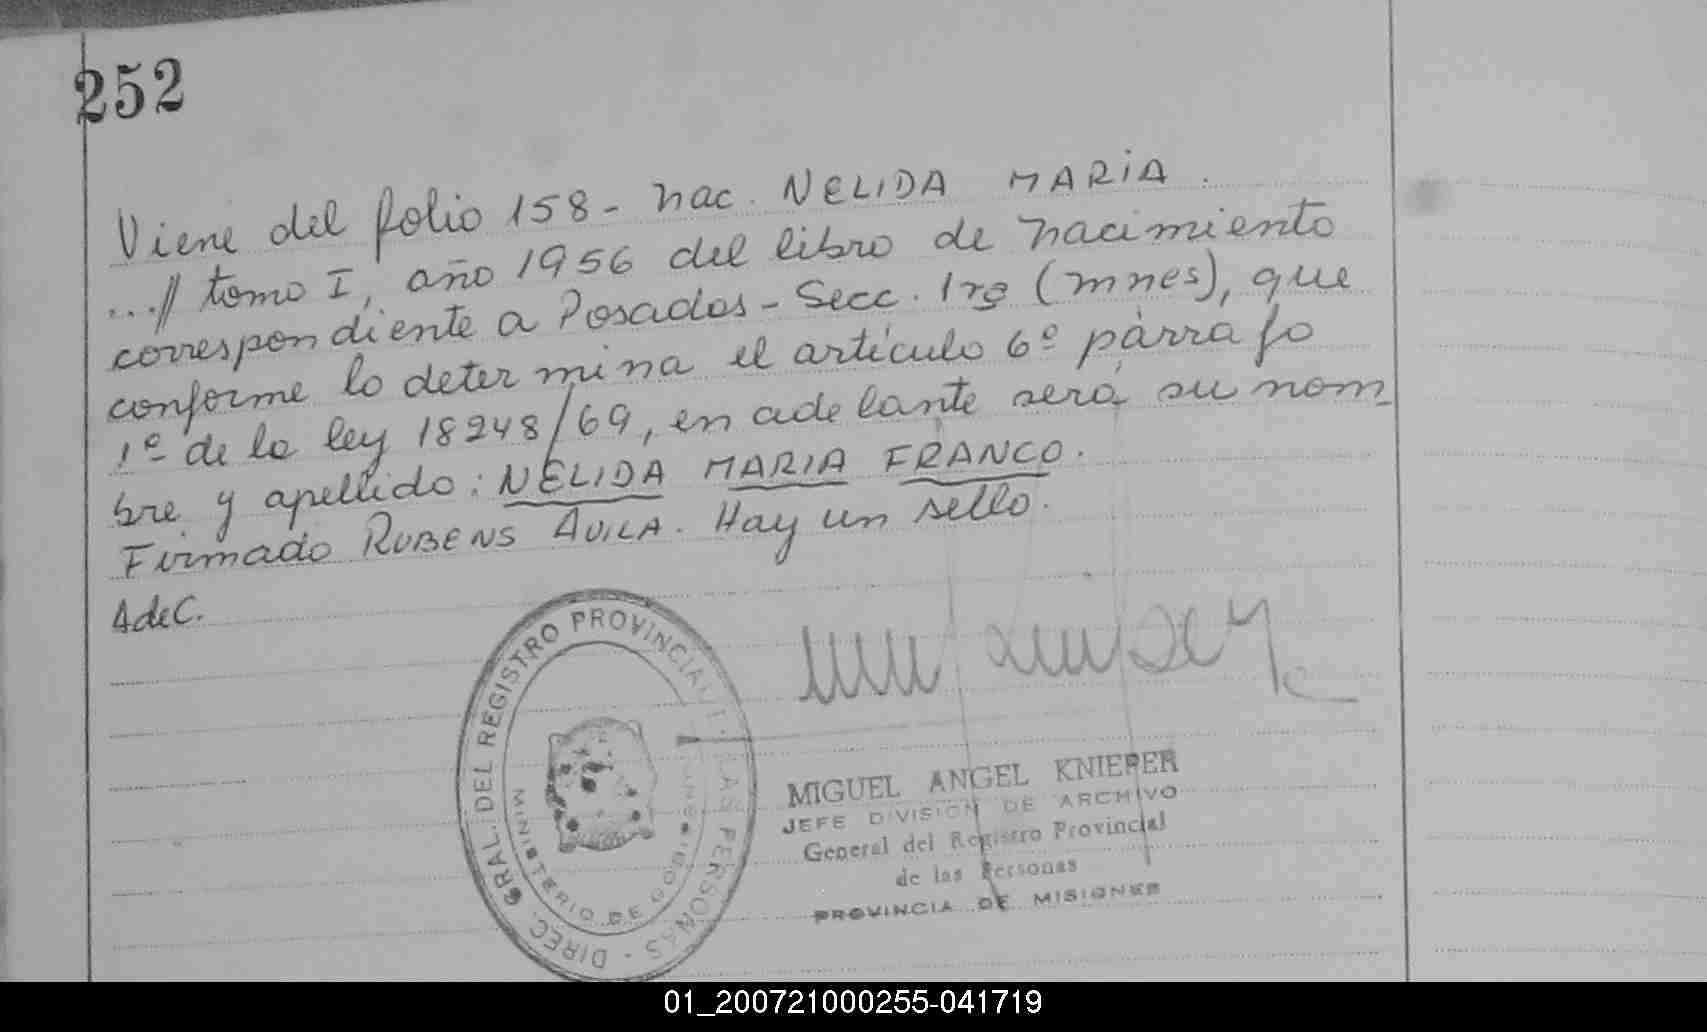 252
Viene del folio 158 - nac. NELIDA MARIA.
...// tomo I, año 1956 del libro de nacimiento
correspondiente a Posadas - Secc. 1ra (mnes), que
conforme lo determina el artículo 6º párrafo
1º de la ley 18248/69, en adelante será su nom-
bre y apellido: NELIDA MARIA FRANCO.
Firmado RUBENS AVILA. Hay un sello.
AdeC.
DIREC. GRAL. DEL REGISTRO PROVINCIAL PERSONAS
MINISTERIO DE GOB.
MIGUEL ANGEL KNIEPER
JEFE DIVISION DE ARCHIVO
General del Registro Provincial
de las Personas
PROVINCIA DE MISIONES
01_200721000255-041719